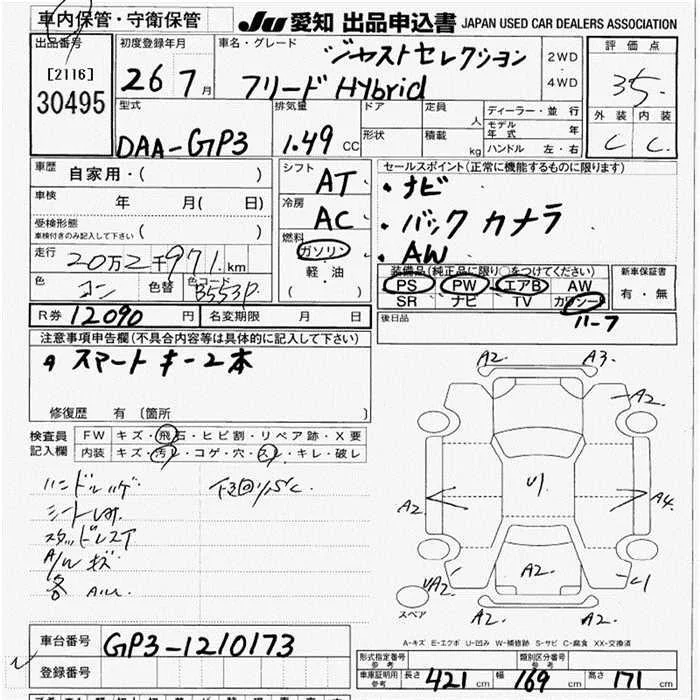 車内保管・守衛保管
JU 愛知 出品申込書 JAPAN USED CAR DEALERS ASSOCIATION
出品番号
[2116]
30495
初度登録年月
26 7月
車名・グレード
ジャストセレクション
フリード Hybrid
2WD
・
4WD
評価点
3.5
外装 内装
C C
型式
DAA-GP3
排気量
1.49 CC
ドア
形状
定員
人
積載
kg
ディーラー・並行
モデル年式 年
ハンドル 左・右
車歴
自家用・( )
車検
年 月( 日)
受検形態
車検付きのみ記入して下さい ( )
走行
20万2千971km
色
コン
色替
色コード
B553P
シフト
AT
冷房
AC
燃料
ガソリン
・
軽・油
( )
セールスポイント(正常に機能するものに限ります)
・ナビ
・バックカメラ
・AW
装備品(純正品に限り○をつけてください)
PS PW エアB AW
SR ナビ TV カワシート
新車保証書
有・無
R券 12090円
名変期限 月 日
後日品
11-7
注意事項申告欄(不具合内容等は具体的に記入して下さい)
スマートキー2本
修復歴 有〔箇所 〕
検査員
記入欄
FW キズ・飛石・ヒビ割・リペア跡・X要
内装 キズ・汚れ・コゲ・穴・スレ・キレ・破レ
ハンドルハゲ
下回りサビ
A/Wキズ
A2 A3
A2
A2 U A4
A2
A2 A2
スペア
A-キズ E-エクボ U-凹み W-補修跡 S-サビ C-腐食 XX-交換済
車台番号
GP3-1210173
登録番号
形式指定番号
参考
類別区分番号
参考
車庫証明用
参考
長さ 421cm 幅 169cm 高さ 171cm